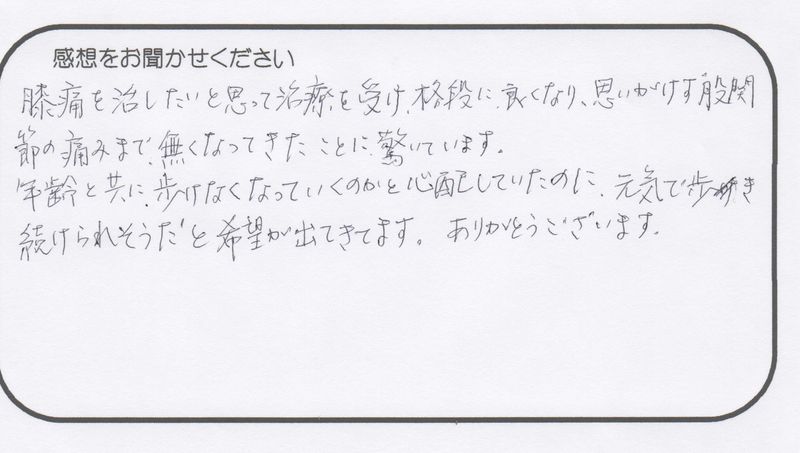 感想をお聞かせください
膝痛を治したいと思って治療を受け、格段に良くなり、思いがけず股関
節の痛みまで無くなってきたことに驚いています。
年齢と共に、歩けなくなっていくのかと心配していたのに、元気で歩き
続けられそうだと希望が出てきてます。ありがとうございます。